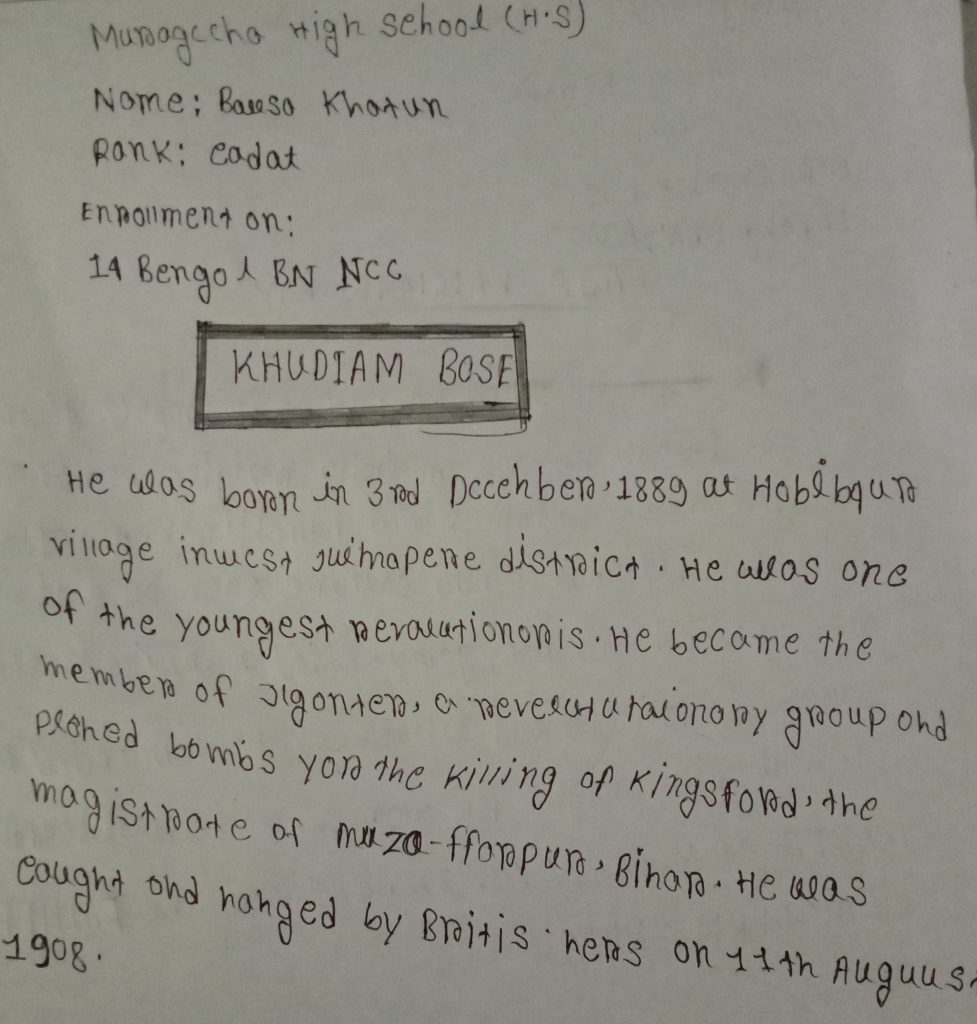 Muragccha High School (H.S)
Name: Khatun
Rank: Cadat
Enrollment on:
14 Bengal BN NCC
KHUDIAM BOSE
He was born in 3rd Dccehber, 1889 at Habibqur
village inwest district. He was one
of the youngest He became the
member of a group and
bombs yor the killing of Kingsford, the
magistrate of muza-ffarpur, Bihar. He was
Caught and hanged by Britis hers on 11th Auguus
1908.